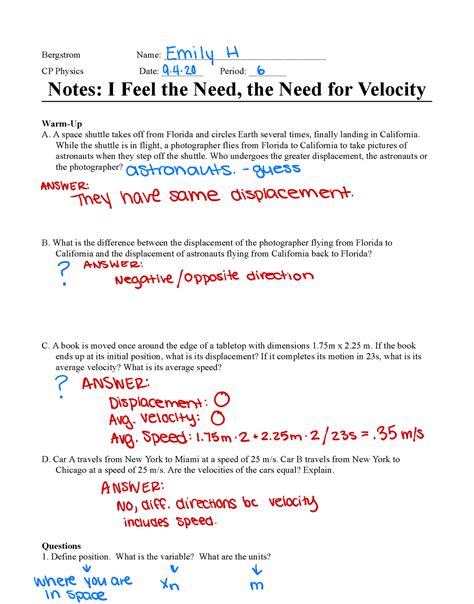 Bergstrom Name: Emily H
CP Physics Date: 9.4.20 Period: 6
Notes: I Feel the Need, the Need for Velocity
Warm-Up
A. A space shuttle takes off from Florida and circles Earth several times, finally landing in California.
While the shuttle is in flight, a photographer flies from Florida to California to take pictures of
astronauts when they step off the shuttle. Who undergoes the greater displacement, the astronauts or
the photographer? astronauts. - guess
ANSWER:
They have same displacement.
B. What is the difference between the displacement of the photographer flying from Florida to
California and the displacement of astronauts flying from California back to Florida?
? ANSWER:
Negative/opposite direction
C. A book is moved once around the edge of a tabletop with dimensions 1.75m x 2.25 m. If the book
ends up at its initial position, what is its displacement? If it completes its motion in 23s, what is its
average velocity? What is its average speed?
? ANSWER:
Displacement: 0
Avg. velocity: 0
Avg. speed: 1.75m · 2 + 2.25m · 2 / 23s = .35 m/s
D. Car A travels from New York to Miami at a speed of 25 m/s. Car B travels from New York to
Chicago at a speed of 25 m/s. Are the velocities of the cars equal? Explain.
ANSWER:
No, diff. directions bc velocity
includes speed.
Questions
1. Define position. What is the variable? What are the units?
where you are xn m
in space